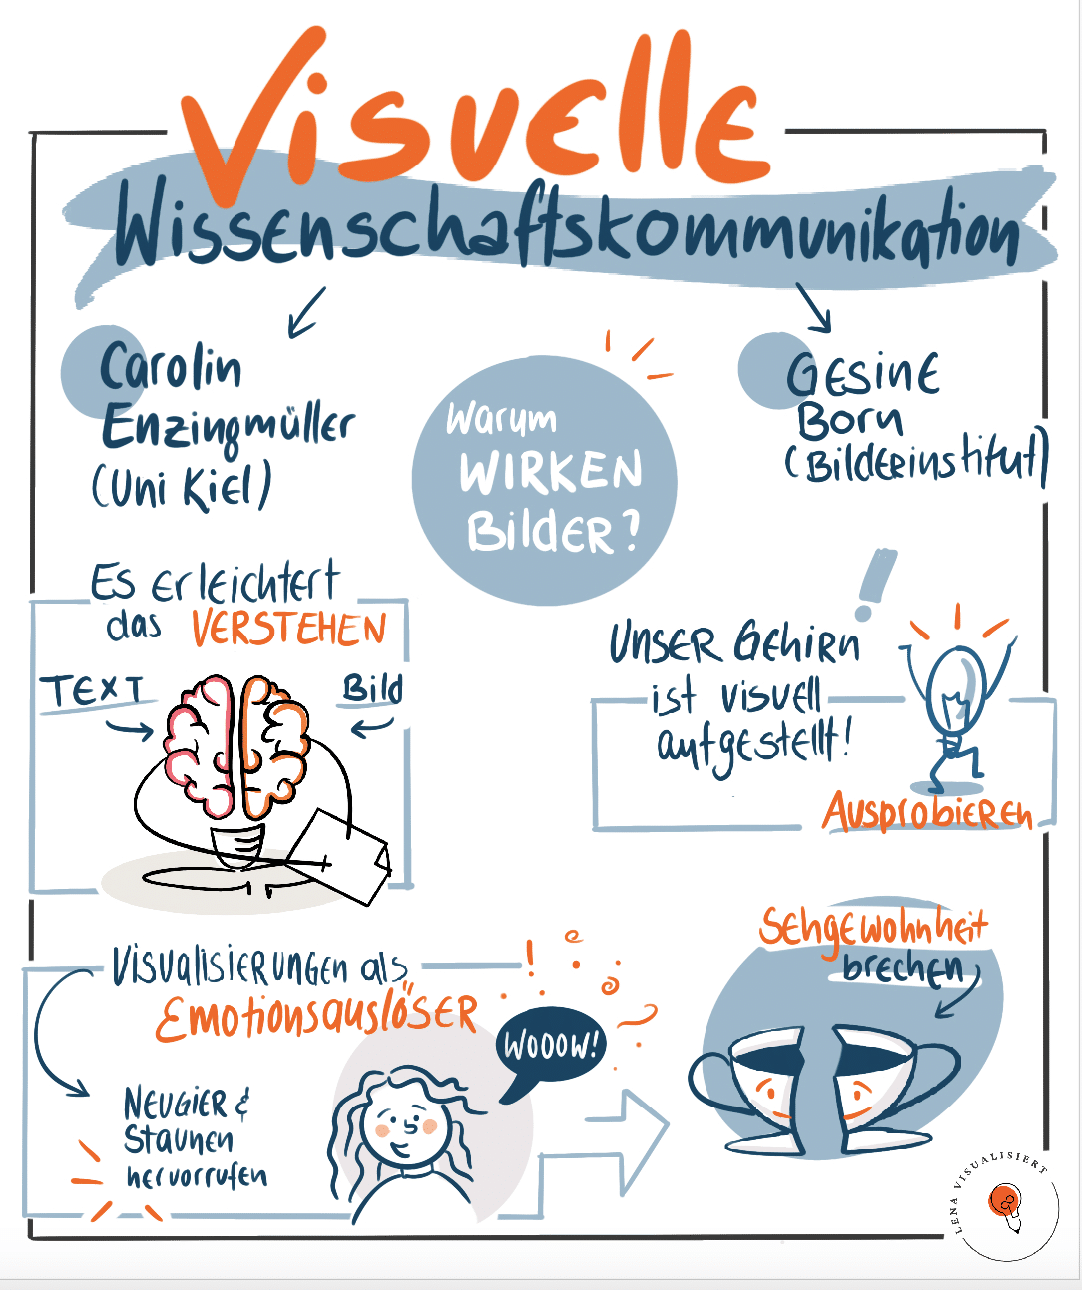 Visuelle
Wissenschaftskommunikation
Carolin
Enzingmüller
(Uni Kiel)
Warum
WIRKEN
Bilder?
Gesine
Born
(Bilderinstitut)
Es erleichtert
das VERSTEHEN
TEXT
Bild
!
Unser Gehirn
ist visuell
aufgestellt!
Ausprobieren
Visualisierungen als
Emotionsauslöser
!
WOOOW!
Neugier &
Staunen
hervorrufen
Sehgewohnheit
brechen
LENA VISUALISIERT